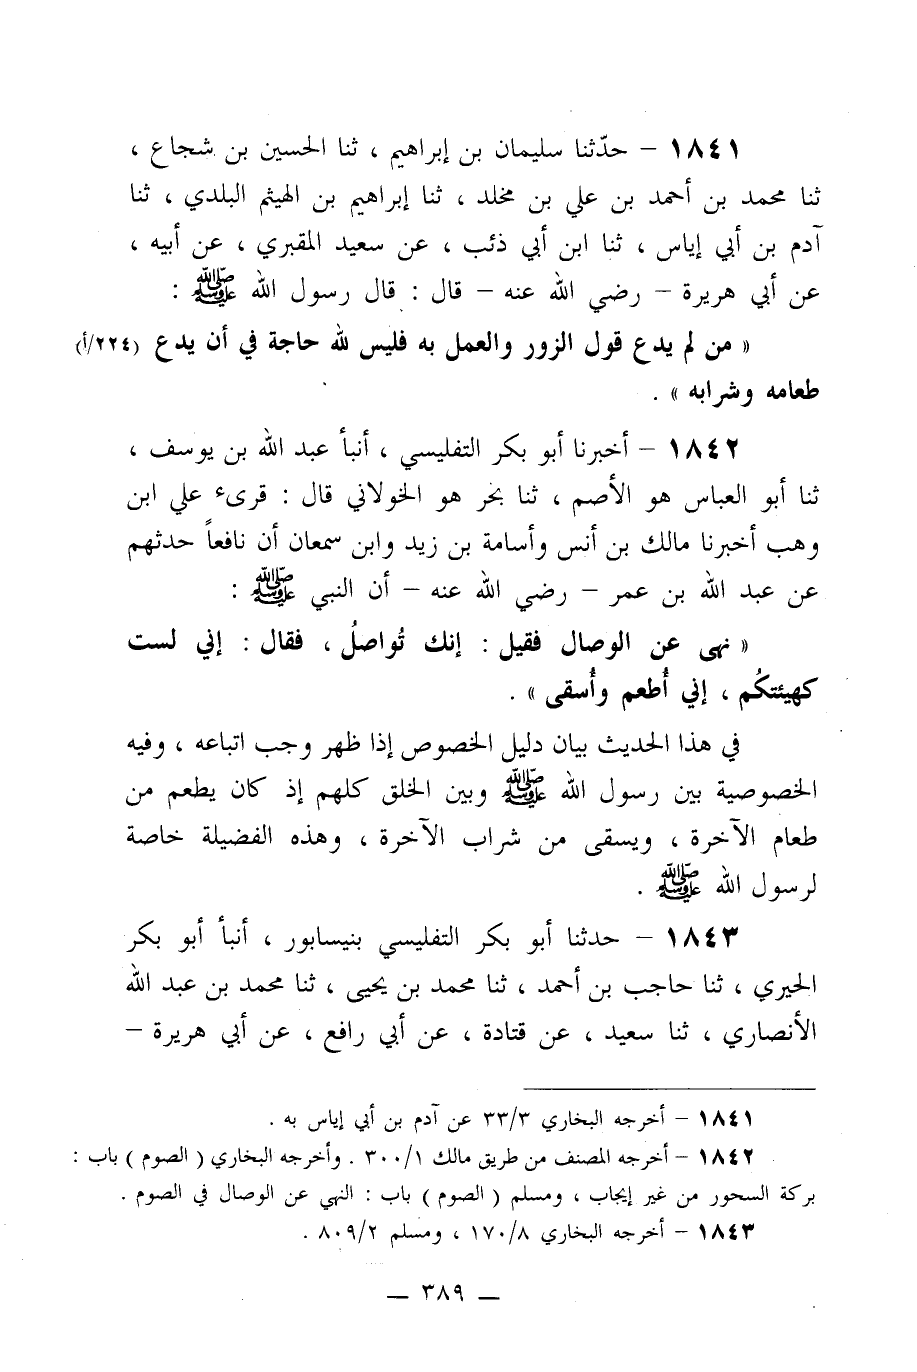 ١٨٤١ – حدّثنا سليمان بن إبراهيم ، ثنا الحسين بن شجاع ،
ثنا محمد بن أحمد بن علي بن مخلد ، ثنا إبراهيم بن الهيثم البلدي ، ثنا
آدم بن أبي إياس ، ثنا ابن أبي ذئب ، عن سعيد المقبري ، عن أبيه ،
عن أبي هريرة – رضي الله عنه – قال : قال رسول الله ﷺ :
« من لم يدع قول الزور والعمل به فليس لله حاجة في أن يدع (٢٢٤/أ)
طعامه وشرابه » .
١٨٤٢ – أخبرنا أبو بكر التفليسي ، أنبأ عبد الله بن يوسف ،
ثنا أبو العباس هو الأصم ، ثنا بحر هو الخولاني قال : قرىء علي ابن
وهب أخبرنا مالك بن أنس وأسامة بن زيد وابن سمعان أن نافعاً حدثهم
عن عبد الله بن عمر – رضي الله عنه – أن النبي ﷺ :
« نهى عن الوصال فقيل : إنك تُواصلُ ، فقال : إني لست
كهيئتكُم ، إني أُطعم وأُسقى » .
في هذا الحديث بيان دليل الخصوص إذا ظهر وجب اتباعه ، وفيه
الخصوصية بين رسول الله ﷺ وبين الخلق كلهم إذ كان يطعم من
طعام الآخرة ، ويسقى من شراب الآخرة ، وهذه الفضيلة خاصة
لرسول الله ﷺ .
١٨٤٣ – حدثنا أبو بكر التفليسي بنيسابور ، أنبأ أبو بكر
الحيري ، ثنا حاجب بن أحمد ، ثنا محمد بن يحيى ، ثنا محمد بن عبد الله
الأنصاري ، ثنا سعيد ، عن قتادة ، عن أبي رافع ، عن أبي هريرة –
١٨٤١ – أخرجه البخاري ٣٣/٣ عن آدم بن أبي إياس به .
١٨٤٢ – أخرجه المصنف من طريق مالك ٣٠٠/١ . وأخرجه البخاري ( الصوم ) باب :
بركة السحور من غير إيجاب ، ومسلم ( الصوم ) باب : النهي عن الوصال في الصوم .
١٨٤٣ – أخرجه البخاري ١٧٠/٨ ، ومسلم ٨٠٩/٢ .
– ٣٨٩ –